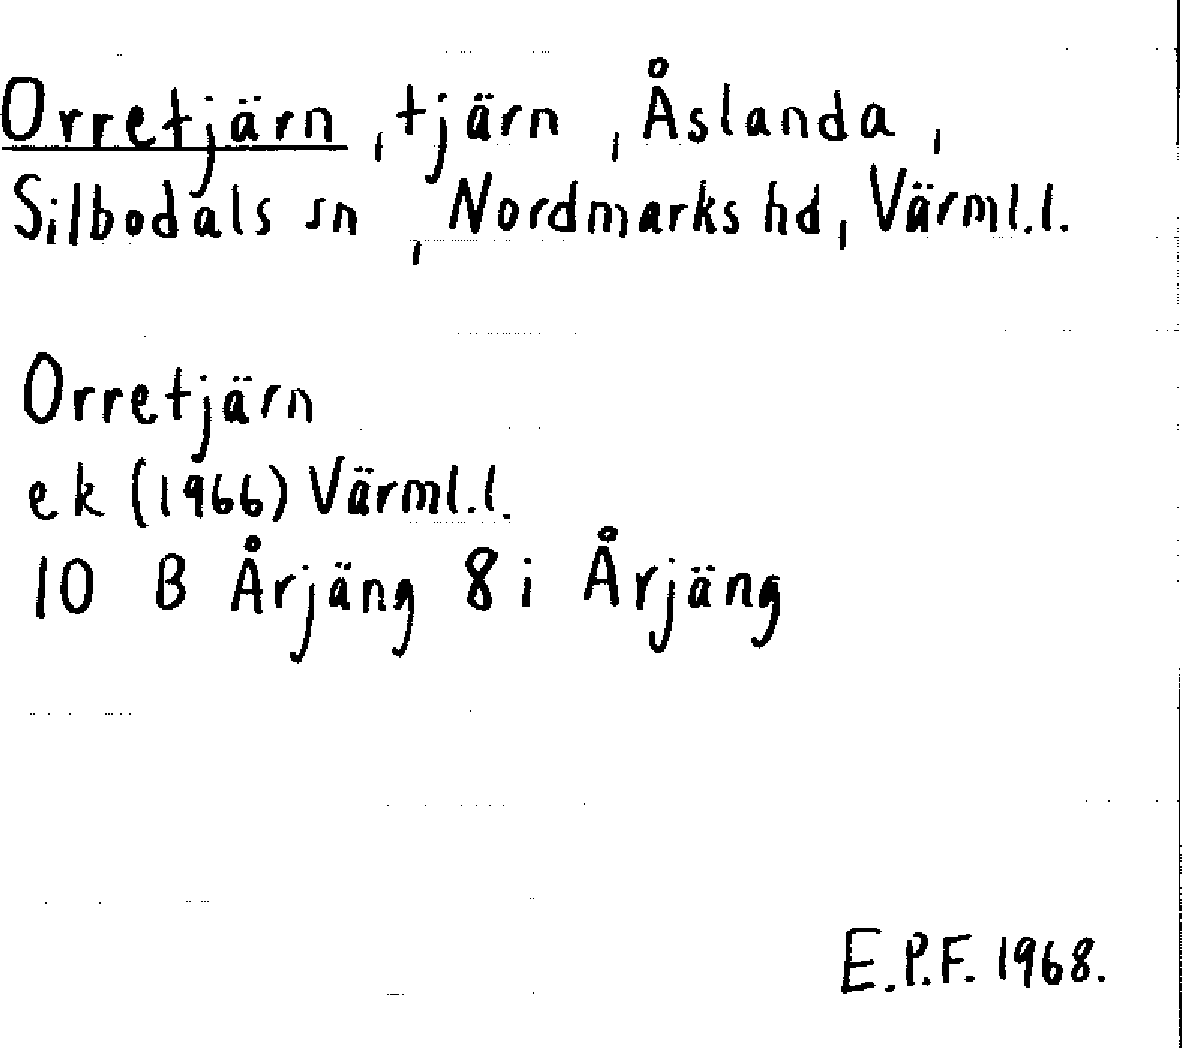 Orretjärn, tjärn, Åslanda,
Silbodals sn, Nordmarks hd, Värml.l.
Orretjärn
ek (1966) Värml.l.
10 B Årjäng 8 i Årjäng
E.P.F. 1968.